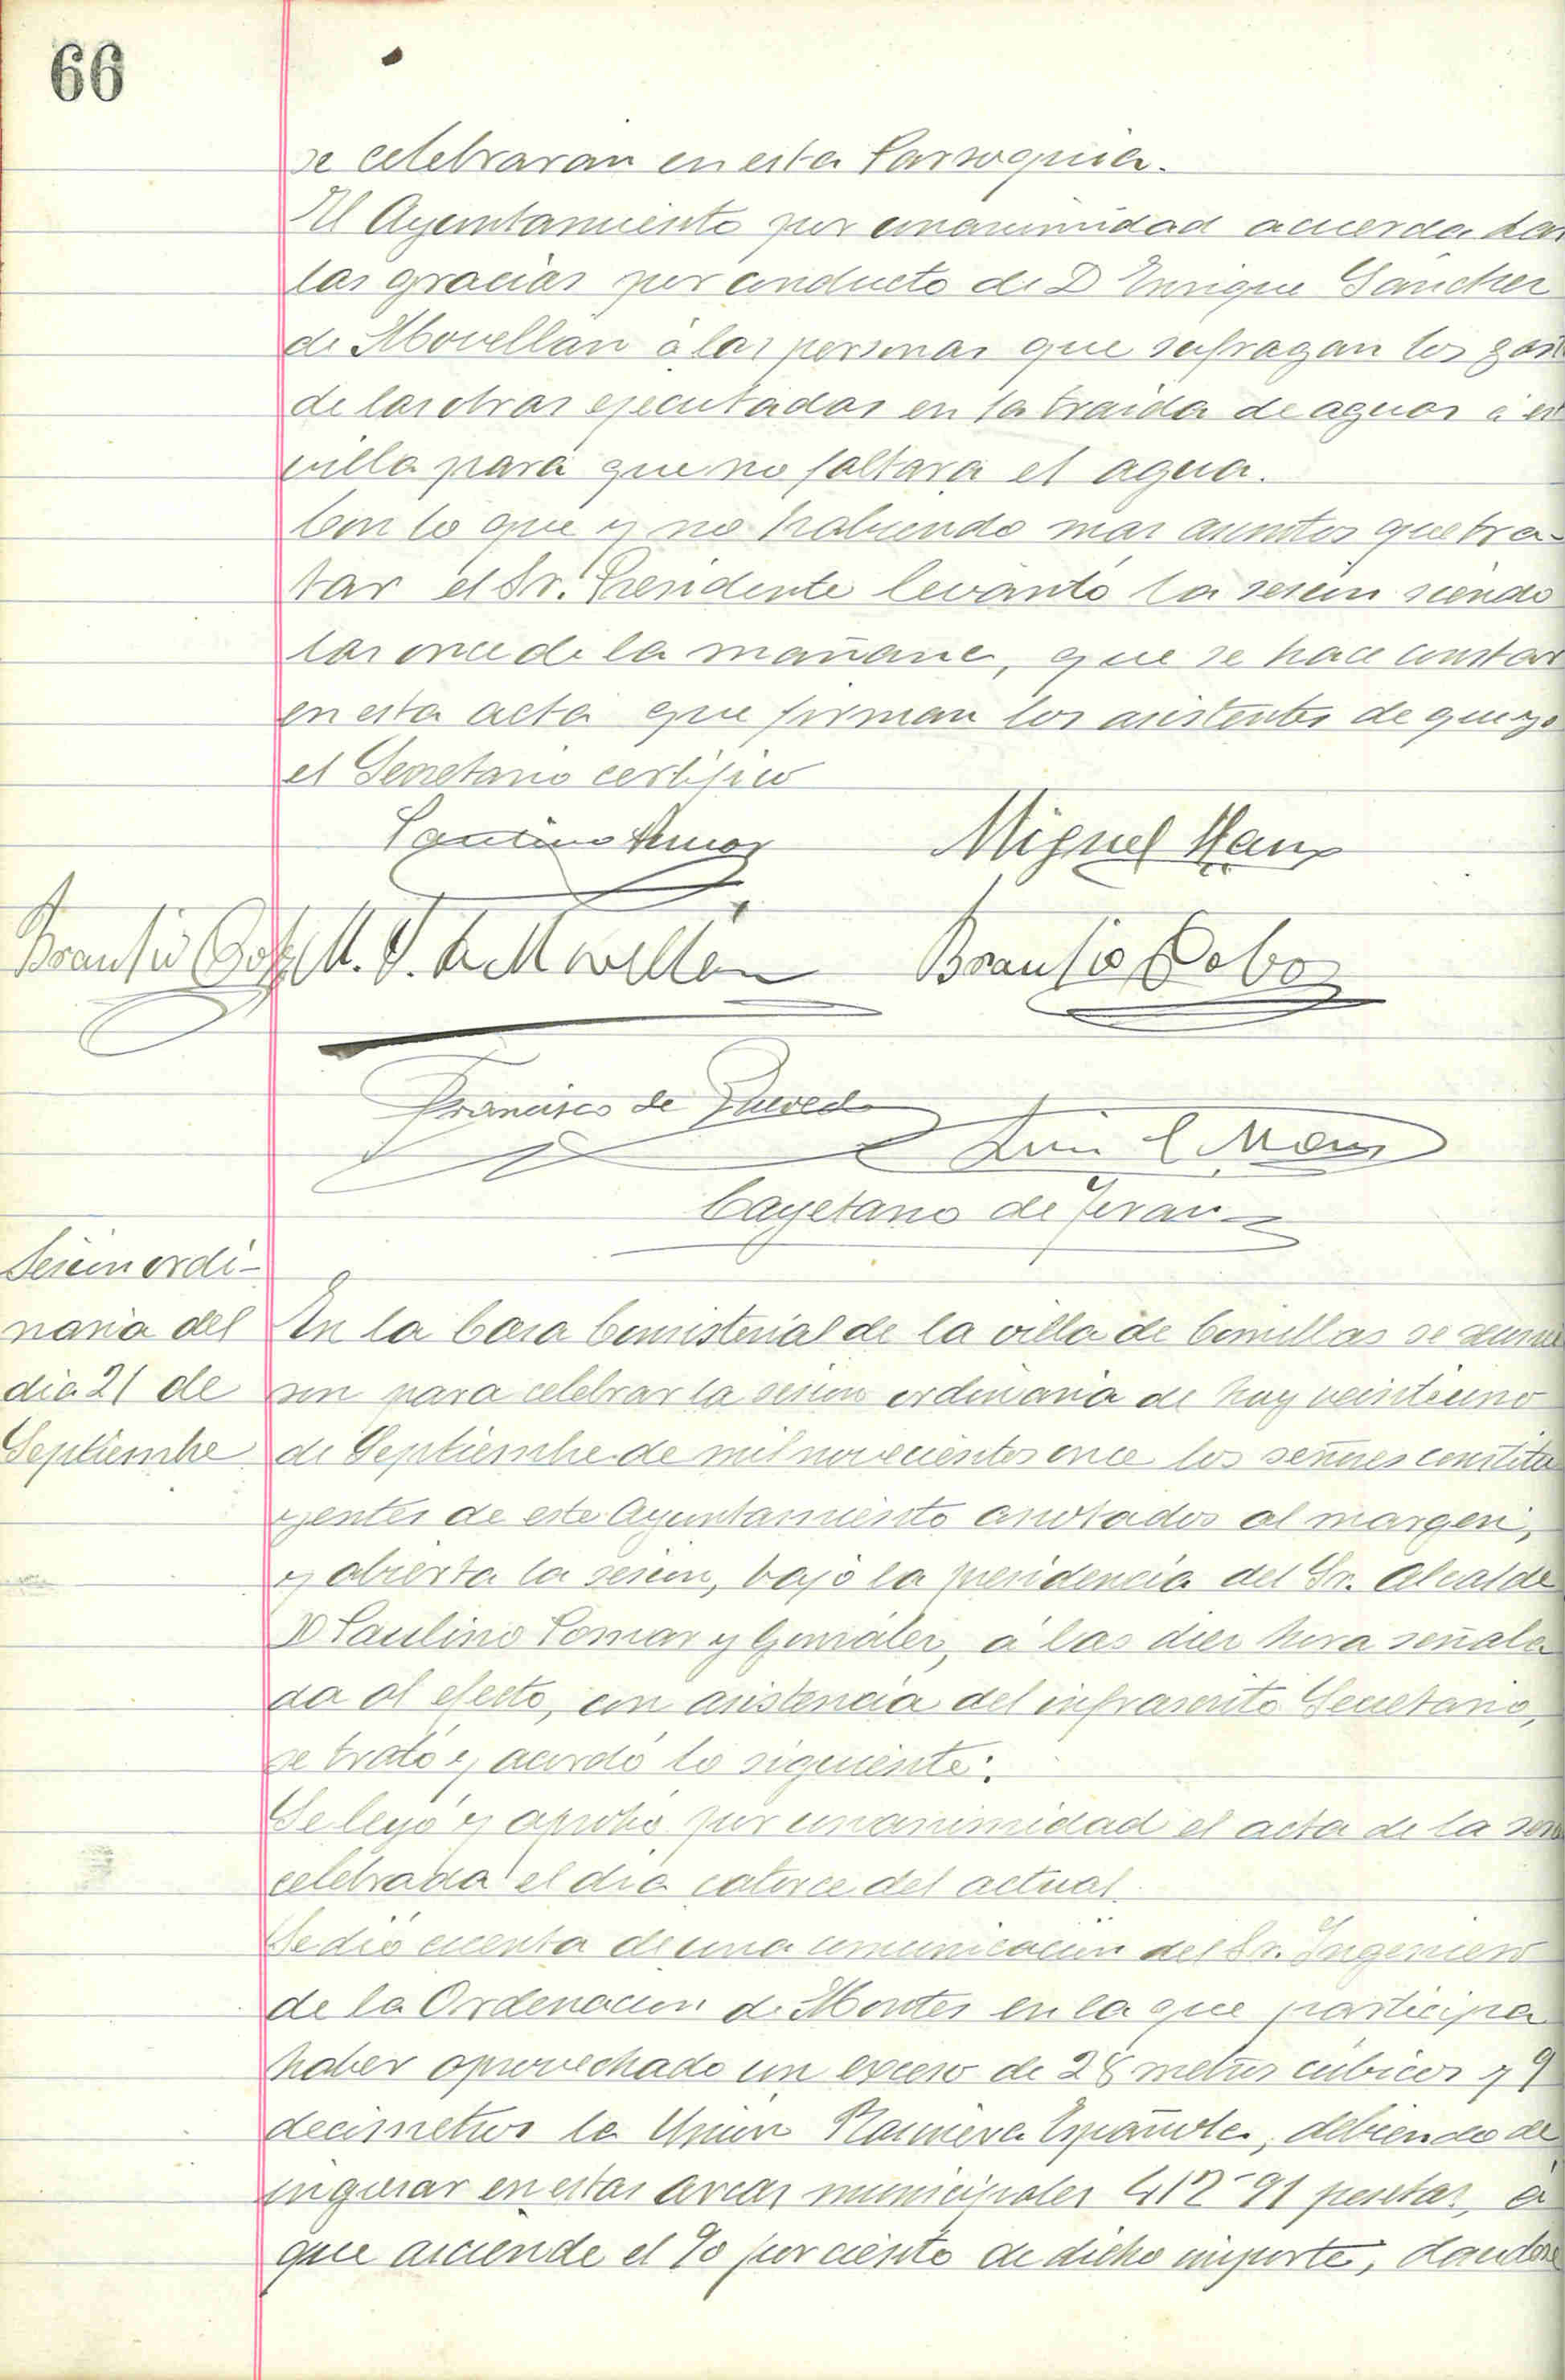 66
se celebraran en esta Parroquia.
El Ayuntamiento por unanimidad acuerda dar
las gracias por conducto de D Enrique Sanchez
de Movellán á las personas que sufragan los gast
de las obras ejecutadas en la traida de aguas á est
villa para que no faltara el agua.
Con lo que y no habiendo mas asuntos que tra-
tar el Sr. Presidente levantó la sesion siendo
las once de la mañana, que se hace constar
en esta acta que firman los asistentes de que yo
el Secretario certifico
Paulino Pomar
Miguel
Braulio M. S. de Movellán Braulio Cobo
Francisco de Quevedo
Luis
Cayetano de Teran
Sesion ordi-
naria del
dia 21 de
Septiembre
En la Casa Consistorial de la villa de Comillas se reunie
ron para celebrar la sesion ordinaria de hoy veintiuno
de Septiembre de mil novecientos once los señores constitu
yentes de este Ayuntamiento anotados al margen,
y abierta la sesion, bajo la presidencia del Sr. Alcalde
D Paulino Pomar y Gonzalez, á las diez hora señala
da al efecto, con asistencia del infrascrito Secretario,
se trató y acordó lo siguiente:
Se leyó y aprobó por unanimidad el acta de la sesi
celebrada el dia catorce del actual.
Se dió cuenta de una comunicacion del Sr. Ingeniero
de la Ordenacion de Montes en la que participa
haber aprovechado un exceso de 28 metros cúbicos y 9
decimetros la Union Española, debiendo de
ingresar en estas arcas municipales 412-91 pesetas, á
que asciende el 90 por ciento de dicho importe, dandose